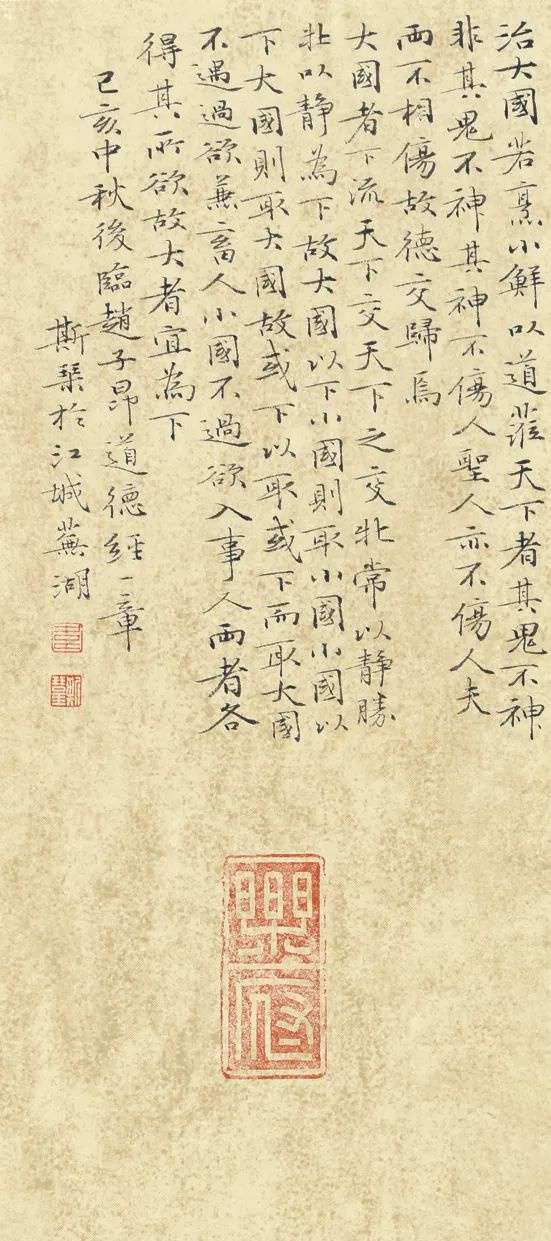 治大國若烹小鮮以道莅天下者其鬼不神
非其鬼不神其神不傷人聖人亦不傷人夫
兩不相傷故德交歸焉
大國者下流天下交天下之交牝常以靜勝
牝以靜為下故大國以下小國則取小國小國以
下大國則取大國故或下以取或下而取大國
不過過欲兼畜人小國不過欲入事人兩者各
得其所欲故大者宜為下
己亥中秋後臨趙子昂道德經一章
斯琹於江城蕪湖